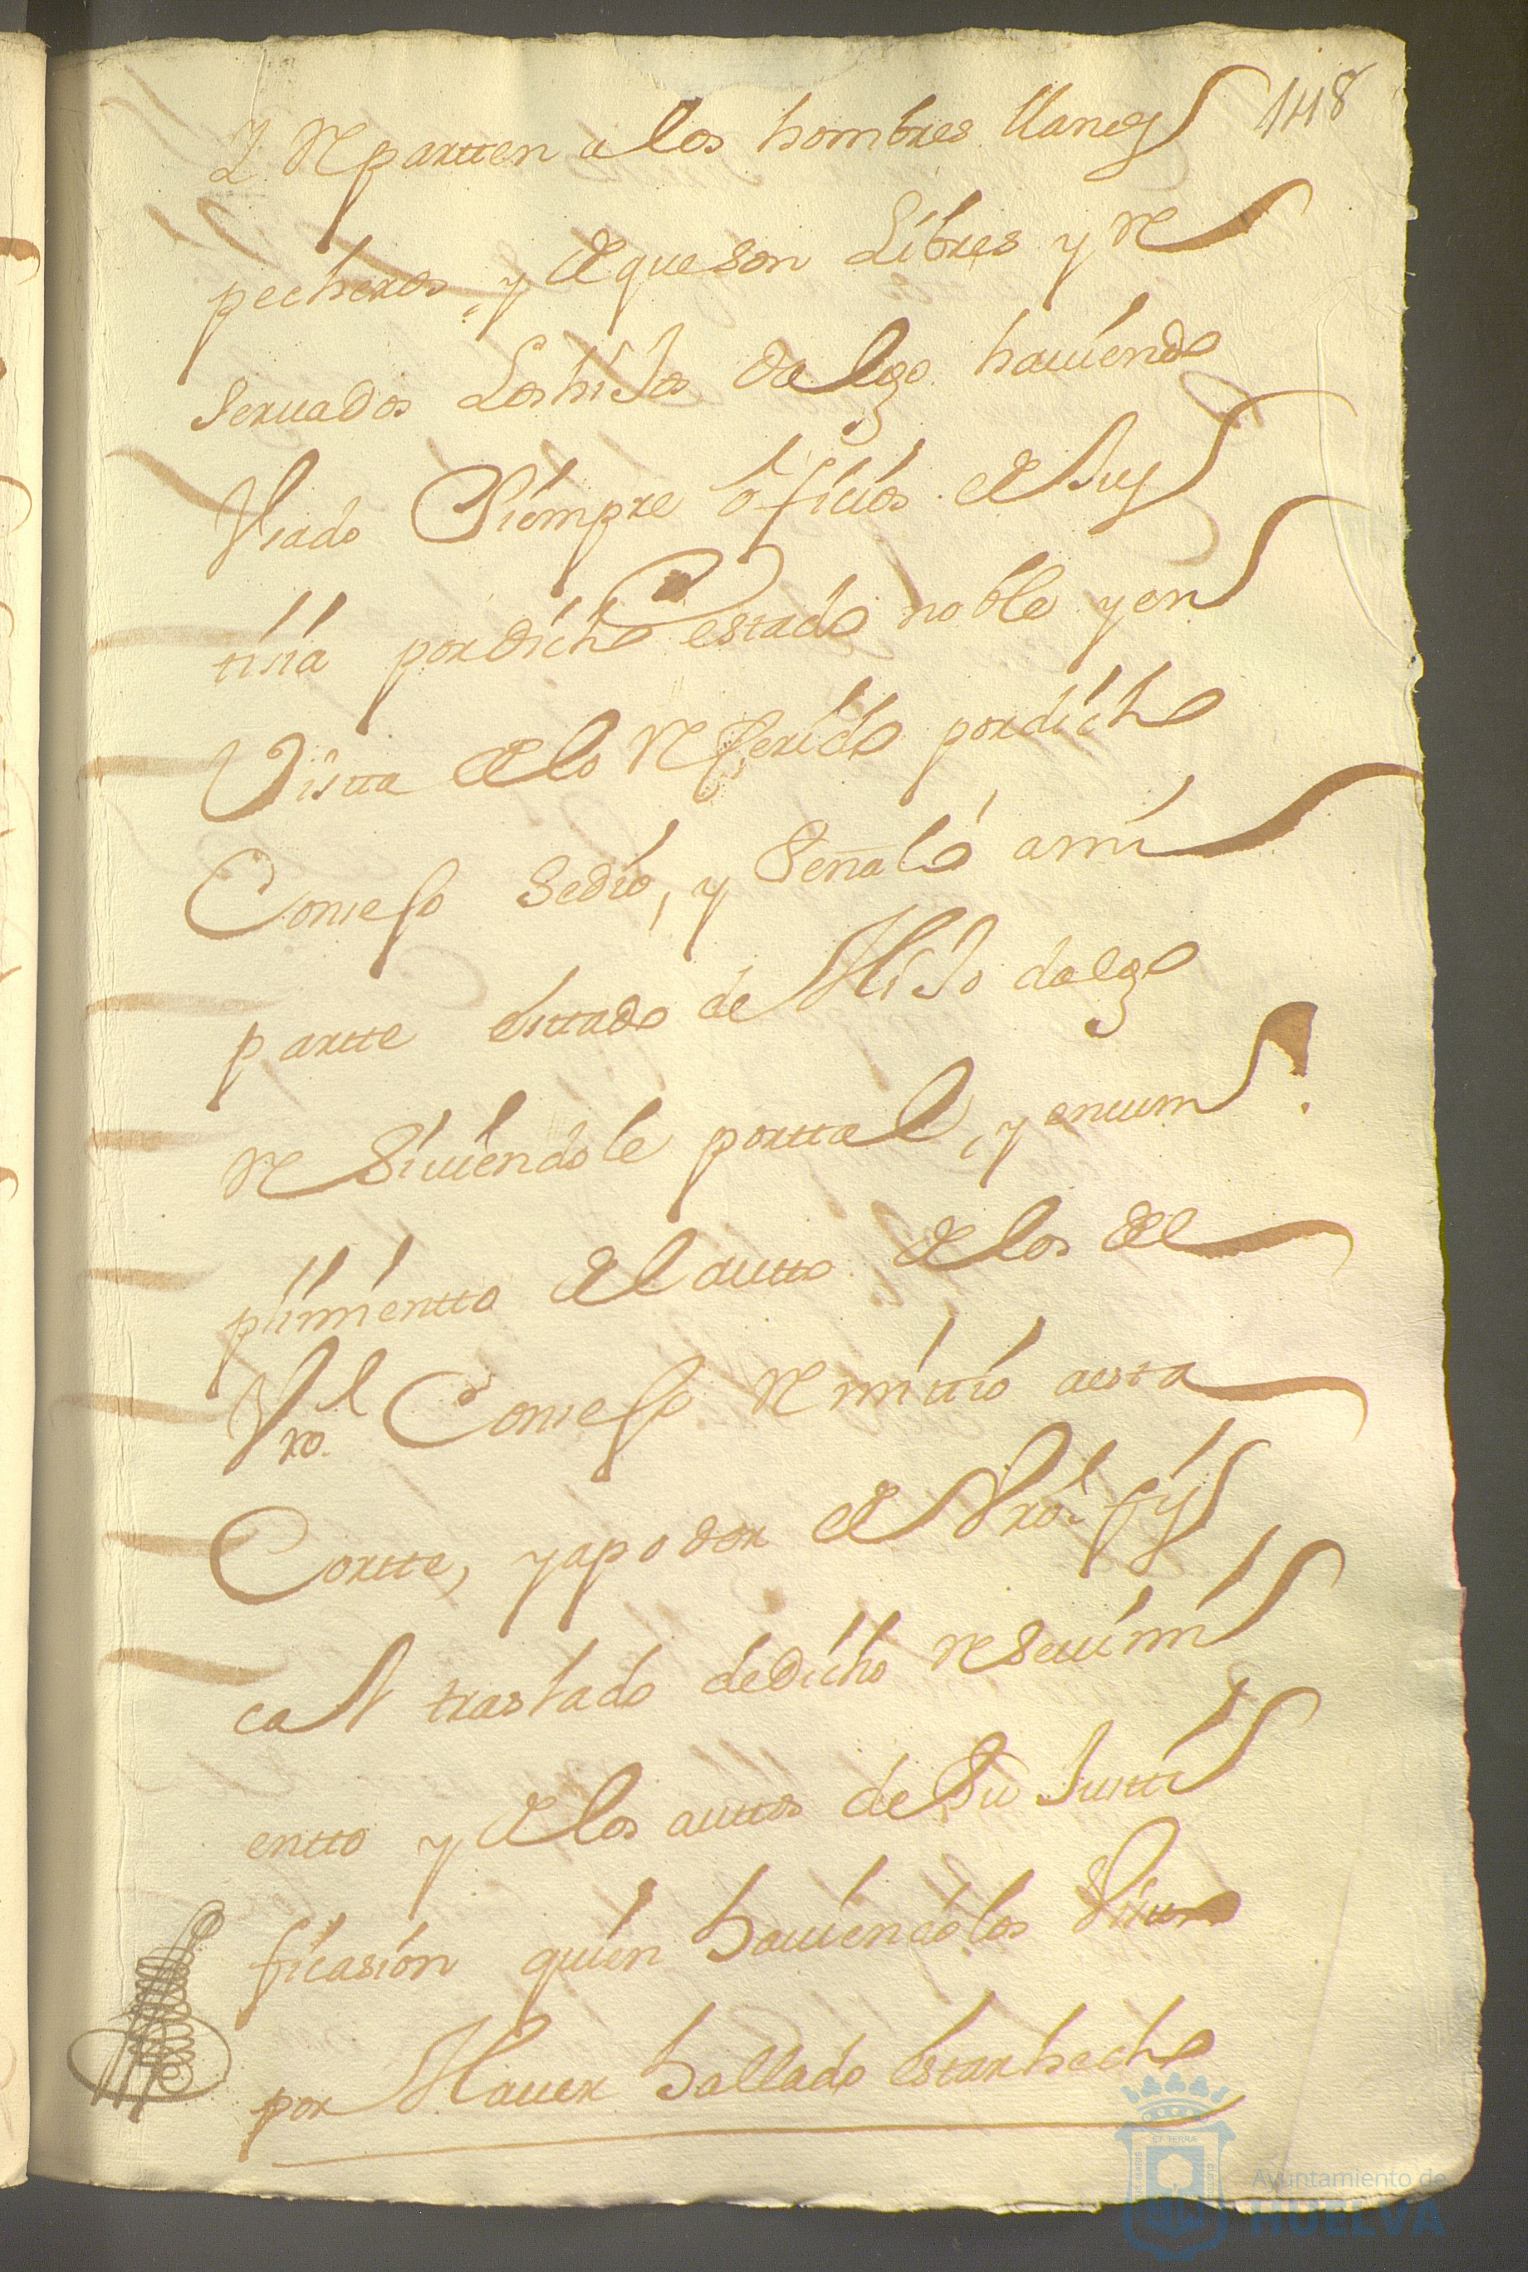 148
y Repartten a los hombres llanos
pecheros, y de que son Libres y Re
servados Los hiJos dalgo haviendo
Vsado Siempre oficios de Jus
tisia por dicho estado noble y en
Vistta de lo Referido por dicho
Consejo se dio, y Señaló a mi
partte esttado de HiJo dalgo
Resiviendole por ttal, y en cum
plimientto del autto de los del
Vro. l Consejo Remittió a esta
Cortte, y a poder de Vro. fis
cal traslado de dicho resevimi
entto y de los auttos de Su Justti
ficasion quien haviendolos Visto
por Haver hallado estar hecho
Ayuntamiento de
HUELVA